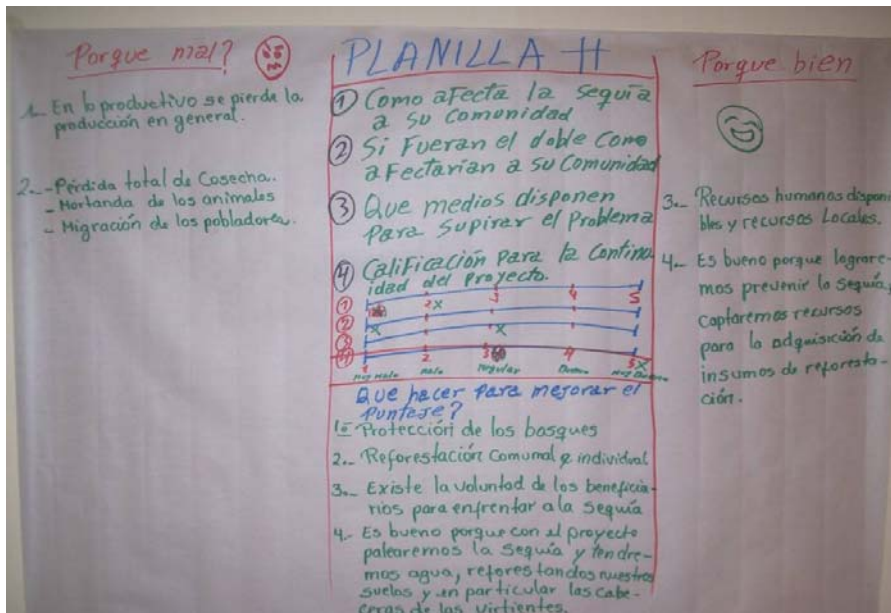 Porque mal?
1.- En lo productivo se pierde la
producción en general.
2.- - Pérdida total de Cosecha.
- Mortanda de los animales
- Migración de los pobladores.
PLANILLA H
1 Como afecta la sequía
a su Comunidad
2 Si Fueran el doble Como
afectarían a su Comunidad
3 Que medios disponen
Para Supirar el Problema
4 Calificación Para la Continu
idad del Proyecto.
1 2 x 3 4 5
2 x x
3
4
1 2 3 4 5 x
Muy Malo Malo Regular Bueno Muy Bueno
Que hacer Para mejorar el
Puntaje?
1º Protección de los bosques
2.- Reforestación Comunal e individual
3.- Existe la voluntad de los beneficia-
rios para enfrentar a la sequía
4.- Es bueno porque con el proyecto
palearemos la sequía y tendre-
mos agua, reforestandos nuestros
suelos y en particular las cabe-
ceras de las virtientes.
Porque bien
3.- Recursos humanos disponi
bles y recursos Locales.
4.- Es bueno porque lograre-
mos prevenir la sequía,
Captaremos recursos
para la adquisición de
insumos de reforesta-
ción.